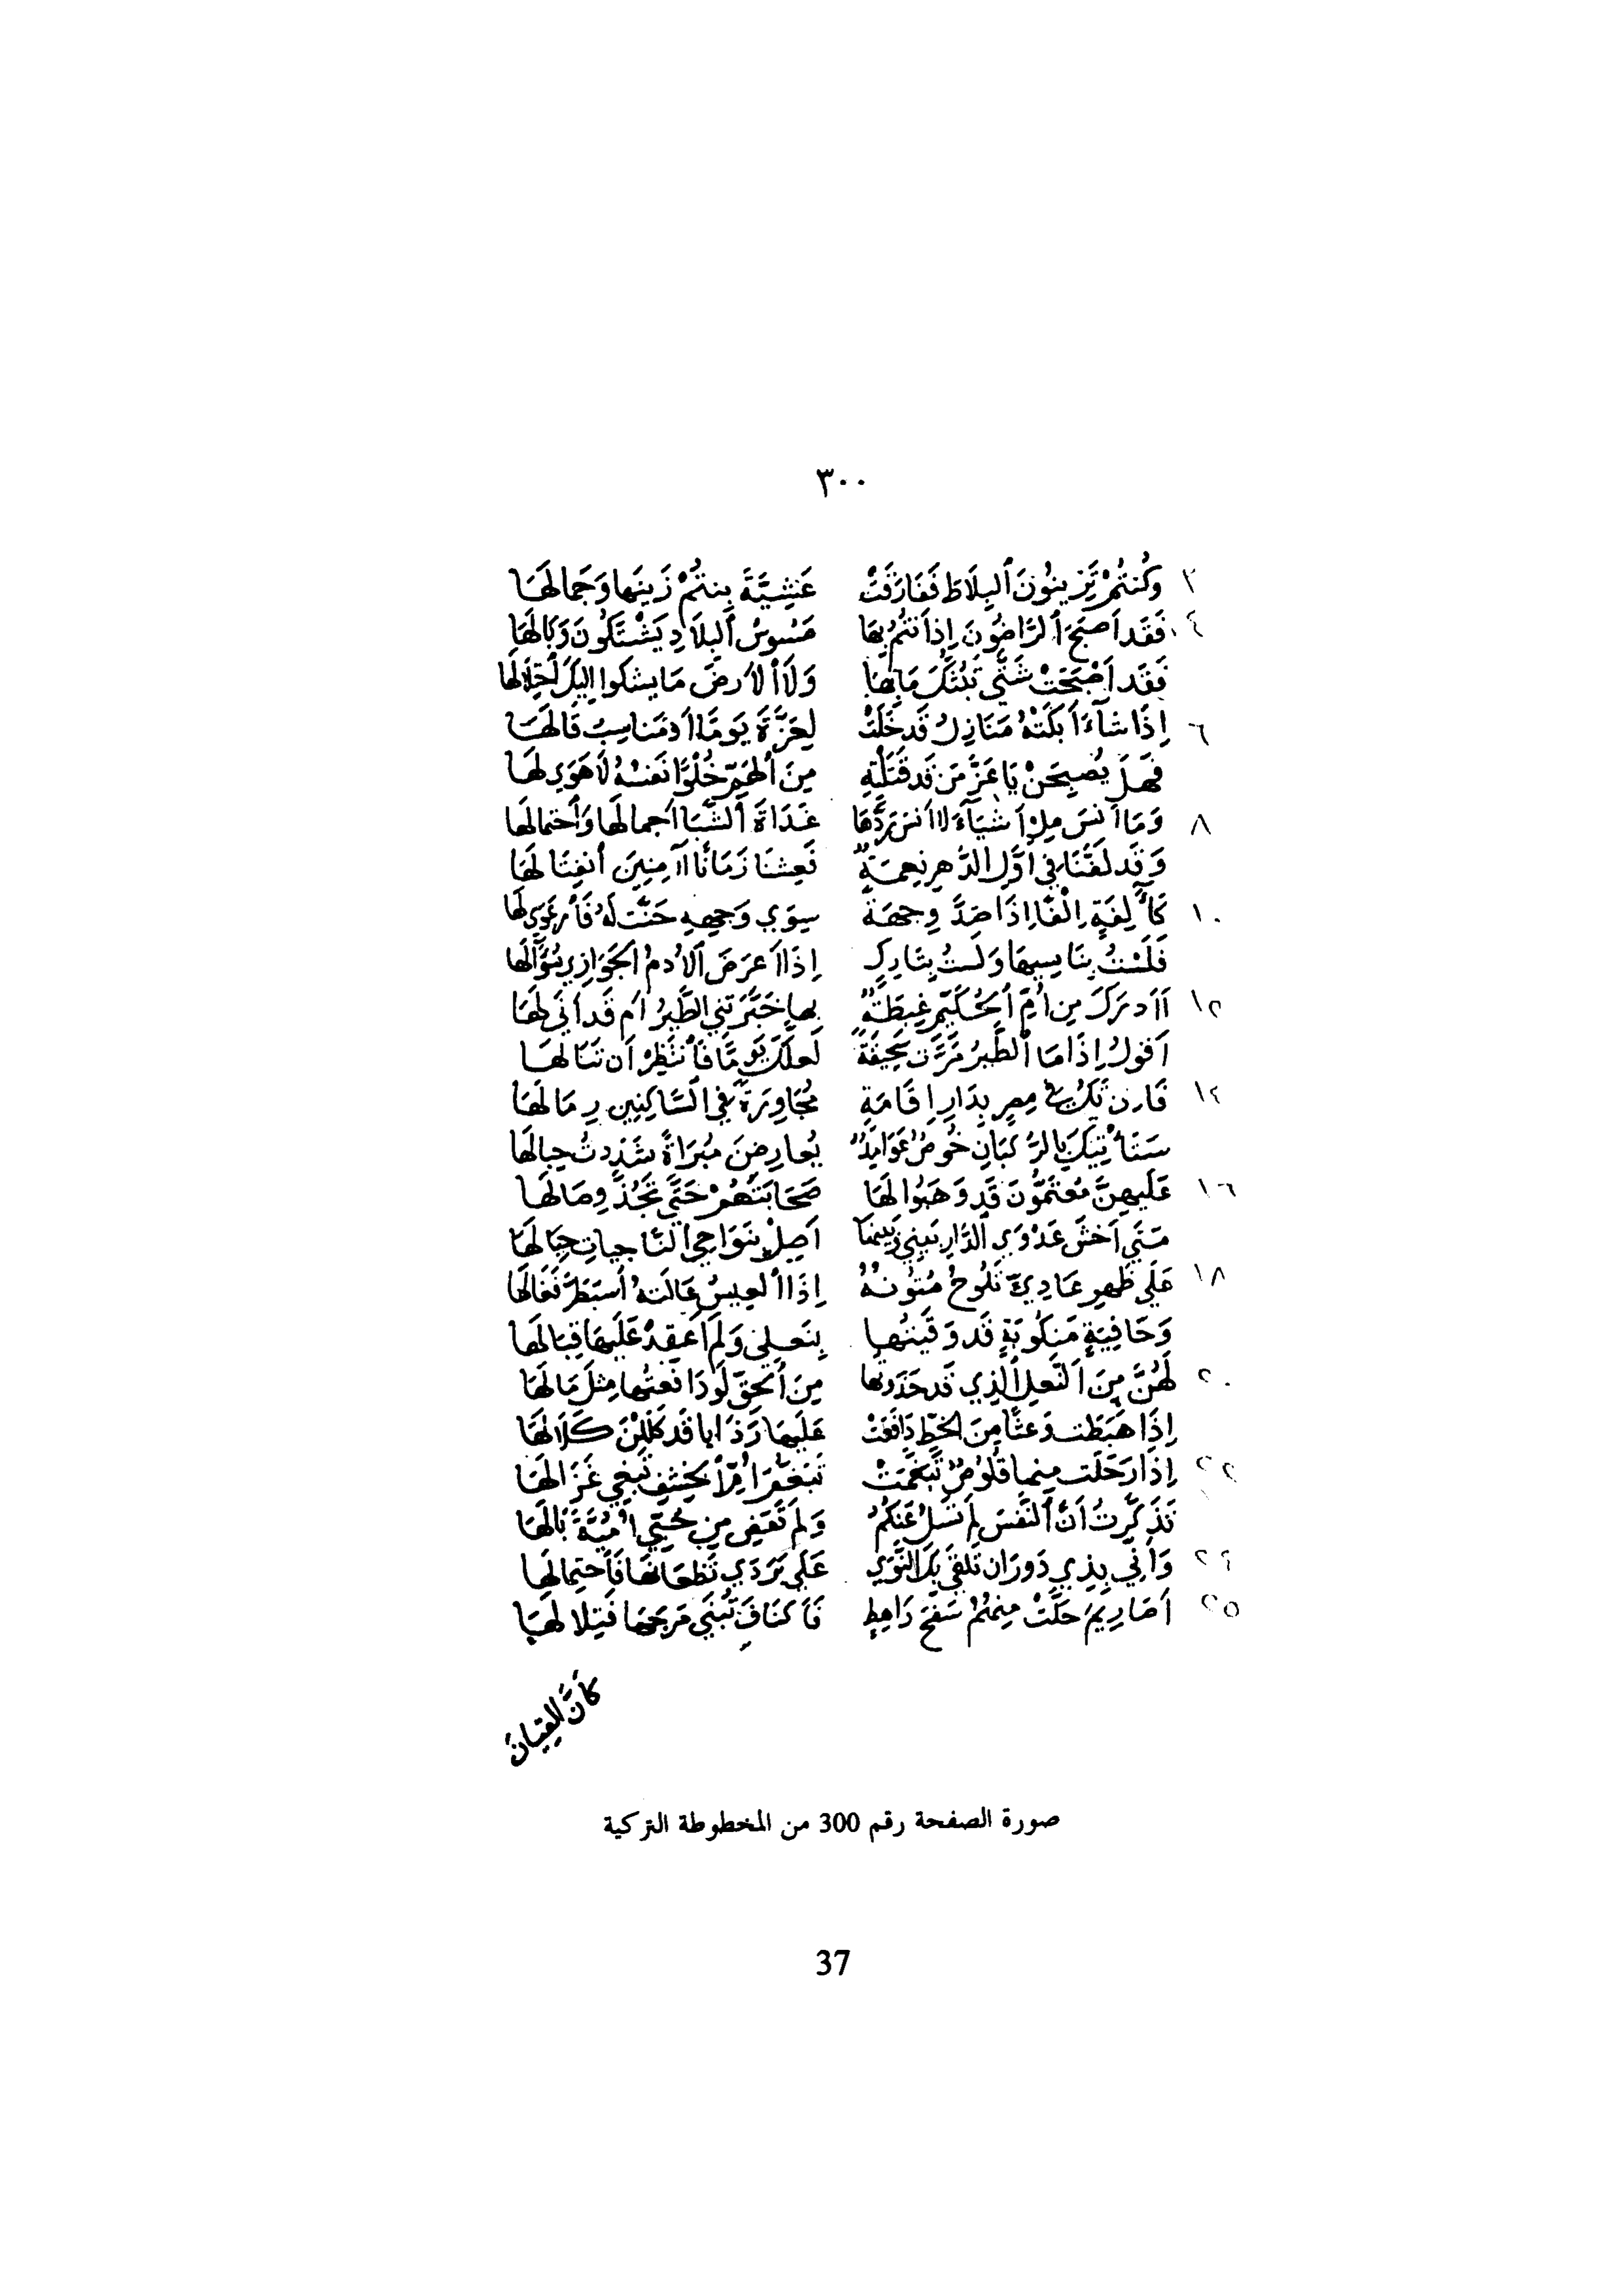 ٣٠٠
٢ وَكُنتُمْ تَزِينُونَ ٱلبِلَاطَ فَفَارَقَتْ عَشِيَّةَ بِنتُمْ زَينَها وَجَمالَهَا
٤ فَقَد أَصبَحَ ٱلرَّاضُونَ إِذ أَنتُمُ بِهَا مَسُوسُ ٱلبِلَادِ يَشْتَكُونَ وَبَالَهَا
فَقَد أَصْبَحَتْ شَتَّى تَبُثُّكَ مَا بِهَا وَلَا ٱلأَرضَ مَا يشكوا إِلَيكَ ٱحتِلَالَهَا
٦ إِذَا شَآءَ أَبكَتْهُ مَنَازِلُ قَد خَلَتْ لِعَزَّةَ يَومًا أَو مَنَاسِبُ قَالَهَا
فَهَل يُصبِحَنْ يَا عَزَّ مَن قَد قَتَلْتِهِ مِنَ ٱلهَمِّ خُلْوًا نَفسُهُ لَا هَوَى لَهَا
٨ وَمَا أَنسَ مِلأَشيَآءِ لَا أَنسَ رَدَّهَا غَدَاةَ ٱلشَّبَا أَجمالَهَا وَٱحتِمالَهَا
وَقَد لَفَّنَا فِي أَوَّلِ ٱلدَّهرِ نِعمَةٌ فَعِشنَا زَمَانًا آمِنِينَ ٱنفِتَالَهَا
١٠ كَآلِفَةٍ إِلْفًا إِذَا صَدَّ وِجهَةً سِوَى وَجهِهِ حَنَّت لَهُ فَٱرعَوَى لَهَا
فَلَسْتُ بِنَاسِيهَا وَلَستُ بِتَارِكٍ إِذَا أَعرَضَ ٱلأُدمُ ٱلجَوَازِي سُؤَالَهَا
١٢ أَأُدرِكَ مِن أُمِّ ٱلحُكَيِّمِ غِبطَةٌ بِهَا خَبَّرَتنِي ٱلطَّيرُ أَم قَد أَنَى لَهَا
أَقُولُ إِذَا مَا ٱلطَّيرُ مَرَّت سَحِيقَةً لَعَلَّكَ يَومًا فَٱنتَظِرْ أَن تَنَالَهَا
١٤ فَإِن تَكُ فِي مِصرٍ بِدَارِ إِقَامَةٍ مُجَاوِرَةً فِي ٱلسَّاكِنِينَ رِمَالَهَا
سَتَأتِيكَ بِالرُّكبَانِ خُوصٌ عَوَامِدٌ يُعَارِضنَ مُبرَاةً شَدَدتُ حِبالَهَا
١٦ عَلَيهِنَّ مُعتَمُّونَ قَد وَهَبُوا لَهَا صَحَابَتَهُمْ حَتَّى تَجُذَّ وِصَالَهَا
مَتَى أَخشَ عَدْوَى ٱلدَّارِ بَينِي وَبَينَهَا أَصِلْ بِنَوَاجِي ٱلنَّاجِياتِ حِبَالَهَا
١٨ عَلَى ظَهرِ عَادِيٍّ تَلُوحُ مُتُونُهُ إِذَا ٱلعِيسُ عَالَتهُ ٱسبَطَرَّ فَعَالَهَا
وَحَافِيَةٍ مَنكُوبَةٍ قَد وَقَيتُهَا بِنَعلِي وَلَم أَعقِدْ عَلَيهَا قِبَالَهَا
٢٠ لَهُنَّ مِنَ ٱلنَّعلِ ٱلَّذِي قَد حَذَوتُهَا مِنَ ٱلحَقِّ لَو دَافَعتُها مِثلَ مَا لَهَا
إِذَا هَبَطَت وَعثًا مِنَ الخَطِّ دَافَعَتْ عَلَيهَا رَذَايا قَد كَلَلْنَ كَلَالَهَا
٢٢ إِذَا رَحَلَت مِنهَا قَلُوصٌ تَبَغَّمَتْ تَبَغُّمَ أُمِّ ٱلخِشفِ تَبغِي غَزَالَهَا
تَذَكَّرتُ أَنَّ ٱلنَّفسَ لَم تَسلُ عَنكُمُ وَلَم تَقضِ مِن حُبَّي أُمَيَّةَ بَالَهَا
٢٤ وَأَنَّى بِذِي دَورَانَ تَلقَى بِكَ ٱلنَّوَى عَلَى بَرَدَى تَظعَانَهَا فَٱحتِمالَهَا
٢٥ أَصَارِيمَ حَلَّتْ مِنهُمُ سَفحَ رَاهِطٍ فَأَكنَافَ تُبنَى مَرجَهَا فَتِلَالَهَا
كَأَنَّ ٱلقِيَانَ
صورة الصفحة رقم 300 من المخطوطة التركية
37